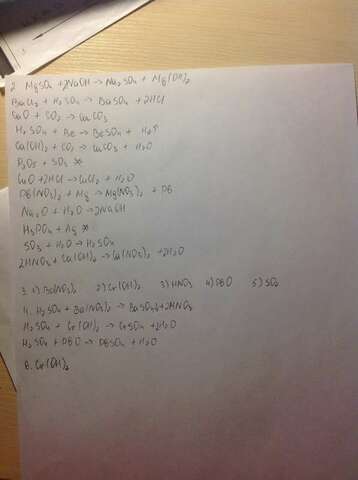 2 MgSO₄ + 2NaOH → Na₂SO₄ + Mg(OH)₂
BaCl₂ + H₂SO₄ → BaSO₄ + 2HCl
CaO + CO₂ → CaCO₃
H₂SO₄ + Be → BeSO₄ + H₂↑
Ca(OH)₂ + CO₂ → CaCO₃ + H₂O
P₂O₅ + SO₃
CuO + 2HCl → CuCl₂ + H₂O
PB(NO₃)₂ + Mg → Mg(NO₃)₂ + PB
Na₂O + H₂O → 2NaOH
H₃PO₄ + Ag
SO₃ + H₂O → H₂SO₄
2HNO₃ + Ca(OH)₂ → Ca(NO₃)₂ + 2H₂O
3. 1) Ba(NO₃)₂ 2) Cr(OH)₂ 3) HNO₃ 4) PBO 5) SO₂
4. H₂SO₄ + Ba(NO₃)₂ → BaSO₄↓ + 2HNO₃
H₂SO₄ + Cr(OH)₂ → CrSO₄ + 2H₂O
H₂SO₄ + PBO → PBSO₄ + H₂O
Cr(OH)₂